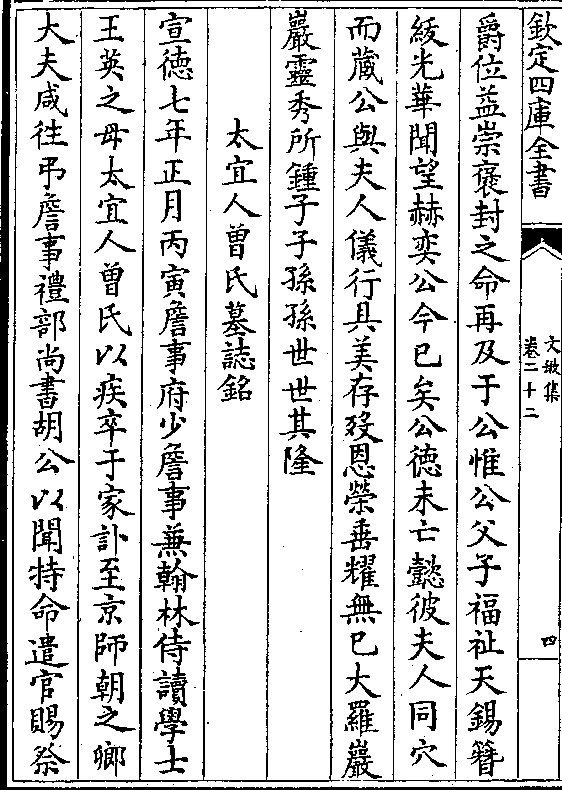 欽定四庫全書
文敏集
卷二十二
四
爵位益崇褒封之命再及于公惟公父子福祉天錫簪
紱光華聞望赫奕公今已矣公徳未亡懿彼夫人同穴
而蔵公與夫人儀行具美存歿恩榮垂耀無已大羅巖
巖靈秀所鍾子子孫孫世世其隆
太宜人曽氏墓誌銘
宣徳七年正月丙寅詹事府少詹事兼翰林侍讀學士
王英之母太宜人曽氏以疾卒于家訃至京師朝之卿
大夫咸往弔詹事禮部尚書胡公以聞特命遣官賜祭